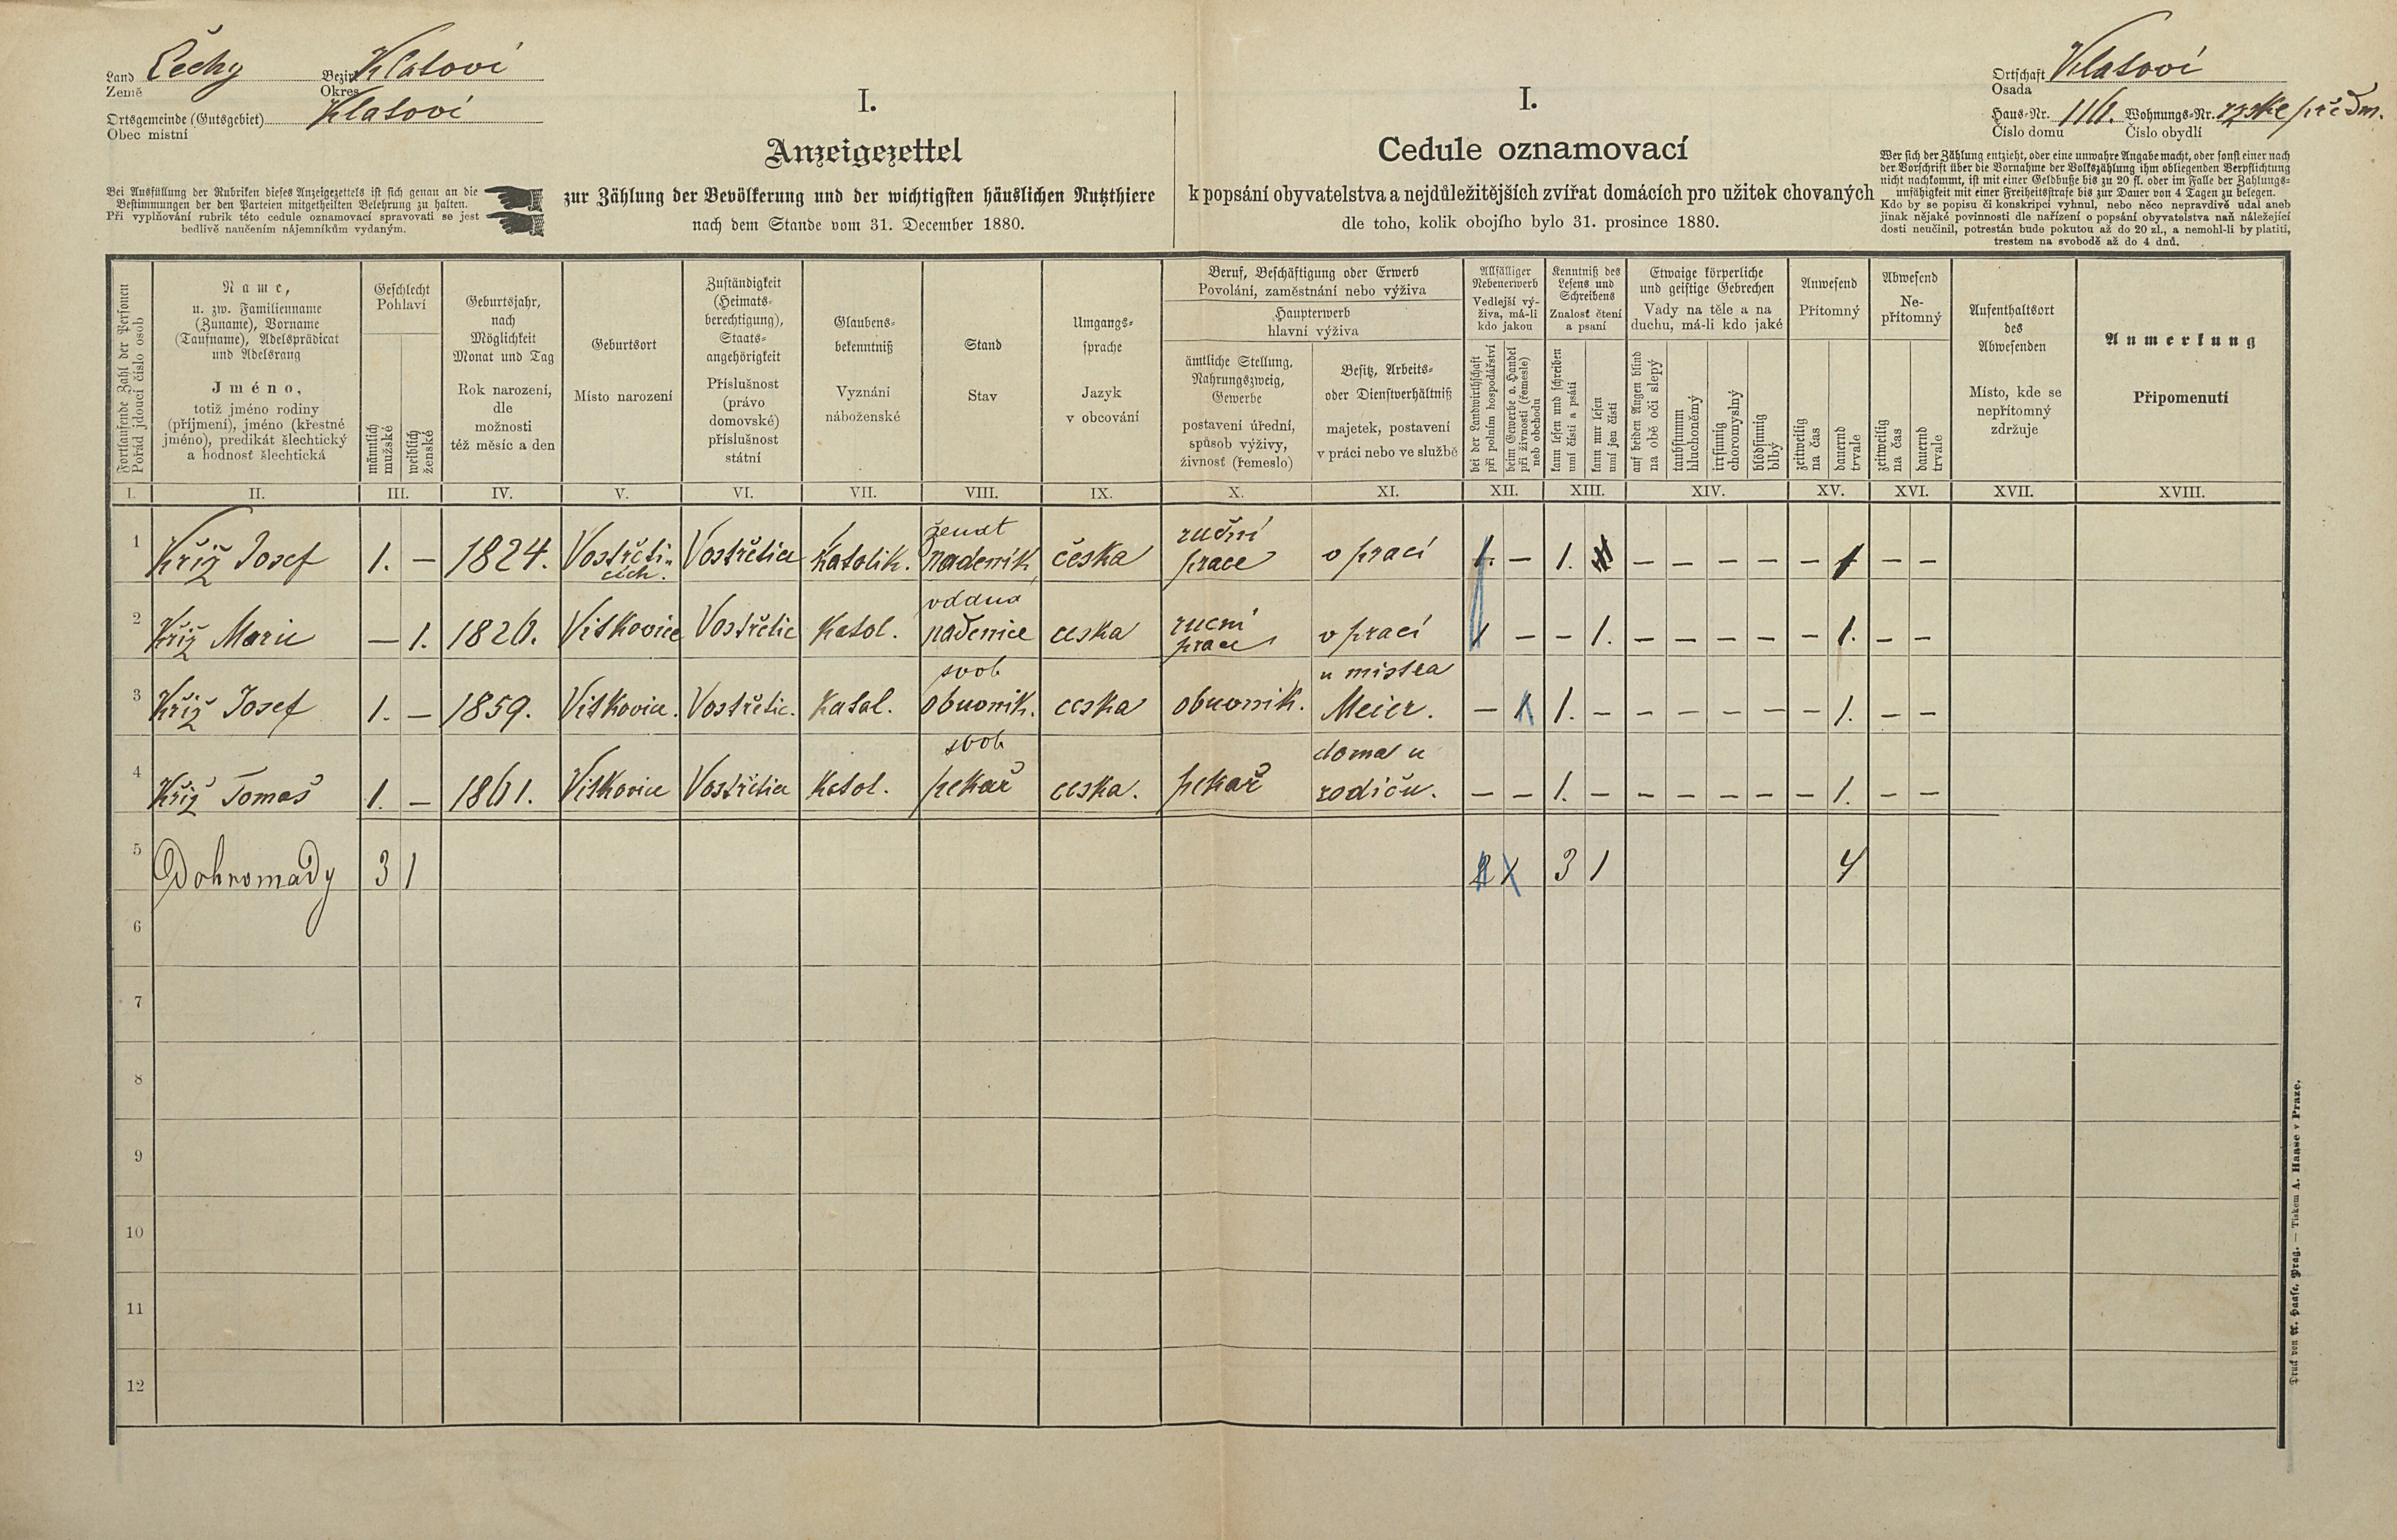 Land Čechy Bezirk Klatoví
Země Okres
Ortsgemeinde (Gutsgebiet) Klatoví
Obec místní
Bei Ausfüllung der Rubriken dieses Anzeigezettels ist sich genau an die
Bestimmungen der den Parteien mitgetheilten Belehrung zu halten.
Při vyplňování rubrik této cedule oznamovací spravovati se jest
bedlivě naučením nájemníkům vydaným.
I.
Anzeigezettel
zur Zählung der Bevölkerung und der wichtigsten häuslichen Nutzthiere
nach dem Stande vom 31. December 1880.
I.
Cedule oznamovací
k popsání obyvatelstva a nejdůležitějších zvířat domácích pro užitek chovaných
dle toho, kolik obojího bylo 31. prosince 1880.
Ortschaft Klatoví
Osada
Haus-Nr. 116. Wohnungs-Nr. předm.
Číslo domu Číslo obydlí
Wer sich der Zählung entzieht, oder eine unwahre Angabe macht, oder sonst einer nach
der Vorschrift über die Vornahme der Volkszählung ihm obliegenden Verpflichtung
nicht nachkommt, ist mit einer Geldbuße bis zu 20 fl. oder im Falle der Zahlungs-
unfähigkeit mit einer Freiheitsstrafe bis zur Dauer von 4 Tagen zu belegen.
Kdo by se popisu či konskripcí vyhnul, nebo něco nepravdivě udal aneb
jinak nějaké povinnosti dle nařízení o popsání obyvatelstva naň náležející
dosti neučinil, potrestán bude pokutou až do 20 zl., a nemohl-li by platiti,
trestem na svobodě až do 4 dnů.
Fortlaufende Zahl der Personen
Pořád jdoucí číslo osob
Name,
u. zw. Familienname
(Zuname), Vorname
(Taufname), Adelsprädicat
und Adelsrang
Jméno,
totiž jméno rodiny
(příjmení), jméno (křestné
jméno), predikát šlechtický
a hodnost šlechtická
Geschlecht
Pohlaví
männlich
mužské
weiblich
ženské
Geburtsjahr,
nach
Möglichkeit
Monat und Tag
Rok narození,
dle
možnosti
též měsíc a den
Geburtsort
Místo narození
Zuständigkeit
(Heimats-
berechtigung),
Staats-
angehörigkeit
Příslušnost
(právo
domovské)
příslušnost
státní
Glaubens-
bekenntniß
Vyznání
náboženské
Stand
Stav
Umgangs-
sprache
Jazyk
v obcování
Beruf, Beschäftigung oder Erwerb
Povolání, zaměstnání nebo výživa
Haupterwerb
hlavní výživa
ämtliche Stellung,
Nahrungszweig,
Gewerbe
postavení úřední,
spůsob výživy,
živnost (řemeslo)
Besitz, Arbeits-
oder Dienstverhältniß
majetek, postavení
v práci nebo ve službě
Allfälliger
Nebenerwerb
Vedlejší vý-
živa, má-li
kdo jakou
bei der Landwirthschaft
při polním hospodářství
beim Gewerbe o. Handel
při živnosti (řemesle)
neb obchodu
Kenntniß des
Lesens und
Schreibens
Znalost čtení
a psaní
kann lesen und schreiben
umí čísti a psáti
kann nur lesen
umí jen čísti
Etwaige körperliche
und geistige Gebrechen
Vady na těle a na
duchu, má-li kdo jaké
auf beiden Augen blind
na obě oči slepý
taubstumm
hluchoněmý
irrsinnig
choromyslný
blödsinnig
blbý
Anwesend
Přítomný
zeitweilig
na čas
dauernd
trvale
Abwesend
Ne-
přítomný
zeitweilig
na čas
dauernd
trvale
Aufenthaltsort
des
Abwesenden
Místo, kde se
nepřítomný
zdržuje
Anmerkung
Připomenutí
I. II. III. IV. V. VI. VII. VIII. IX. X. XI. XII. XIII. XIV. XV. XVI. XVII. XVIII.
ženat ruční
1 Kříž Josef 1. – 1824. Vostřeti- Vostřetice Katolik. nadeník česka prace v praci 1. – 1. – – – – – 1 – –
cích.
vddna rucni
2 Kříž Marie – 1. 1826. Vitkovice Vostřetic Katol. nadenice ceska prace v praci 1 – – 1. – – – – – 1. – –
svob u mistra
3 Kříž Josef 1. – 1859. Vitkovice. Vostřetic. Katol. obuvnik. ceska obuvnik. Meier. – 1 1. – – – – – – 1. – –
svob doma u
4 Kříž Tomaš 1. – 1861. Vitkovice Vostřetice Katol. pekař ceska. pekař rodiču. – – 1. – – – – – – 1. – –
5 Dohromady 3 1 2 1 3 1 4
6
7
8
9
10
11
12
Druck von A. Haase, Prag. — Tiskem A. Haase v Praze.